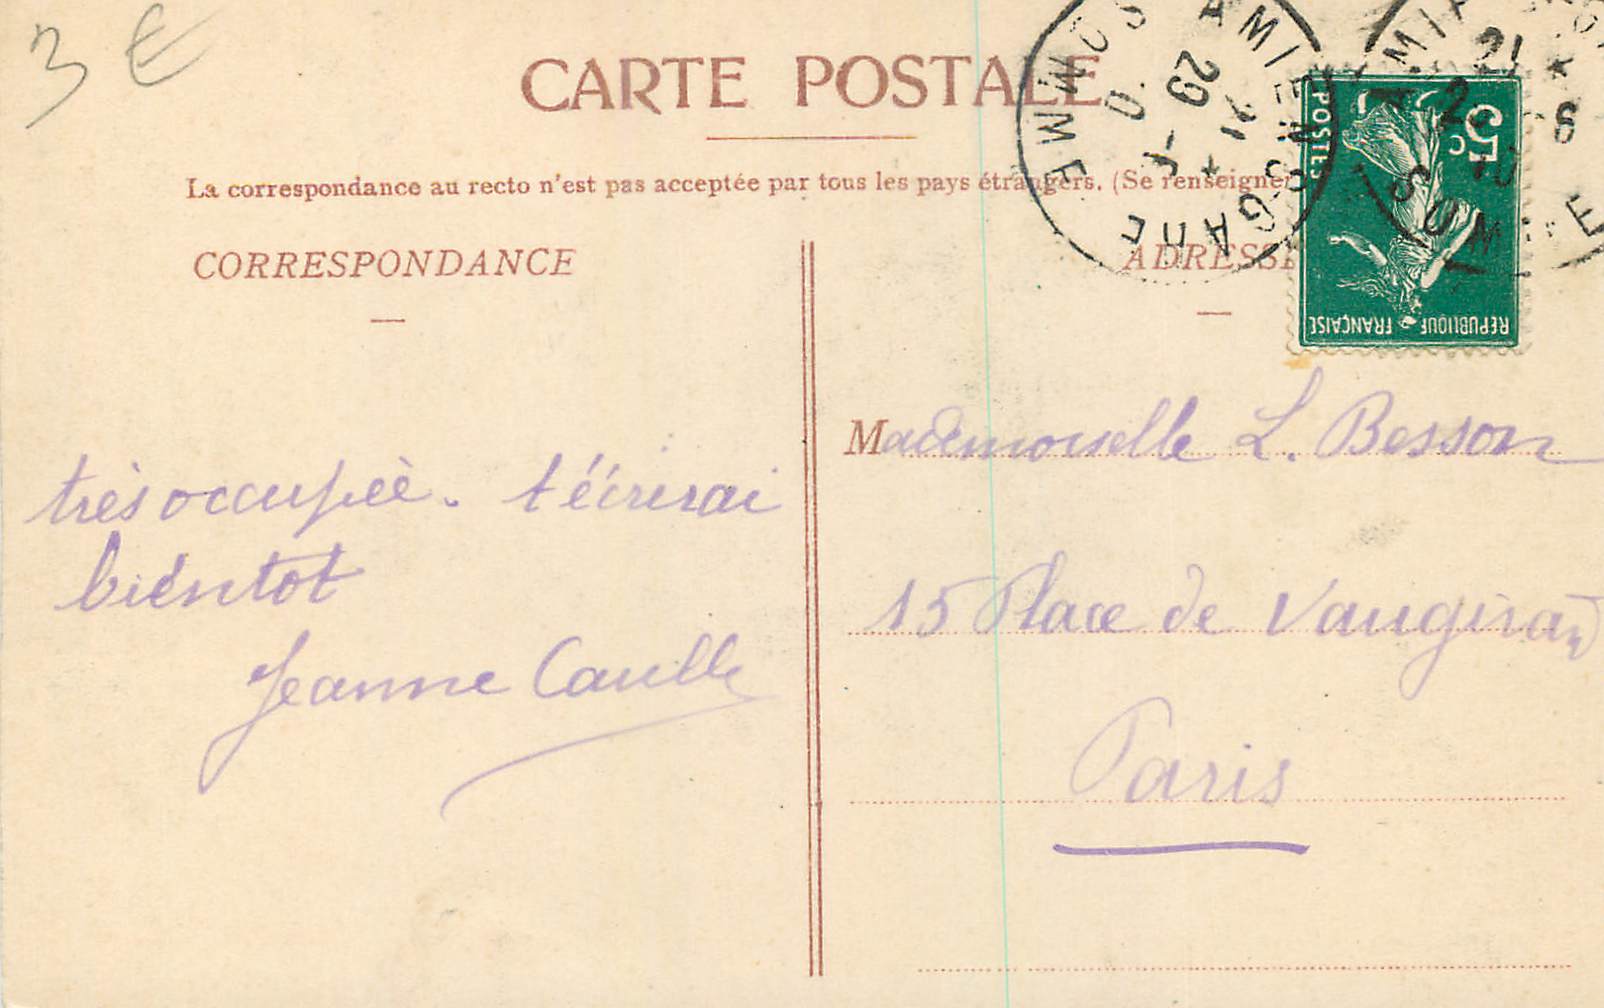 3 €
CARTE POSTALE
La correspondance au recto n'est pas acceptée par tous les pays étrangers. (Se renseigner
CORRESPONDANCE
ADRESSE
AMIENS GARE SOMME
21 *
29 - 6
AMIENS
SOMME
21
* 6
5c
POSTES
REPUBLIQUE FRANÇAISE
très occupée. t'écrirai
bientot
Jeanne
Mademoiselle L. Besson
15 Place de Vaugirard
Paris